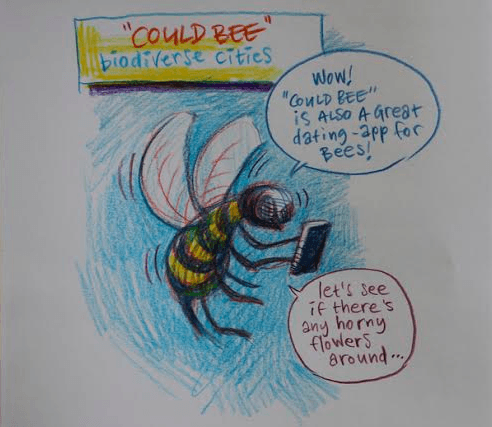 "COULD BEE"
biodiverse cities
WOW!
"COULD BEE"
is ALSO A Great
dating-app for
Bees!
let's see
if there's
any horny
flowers
around...